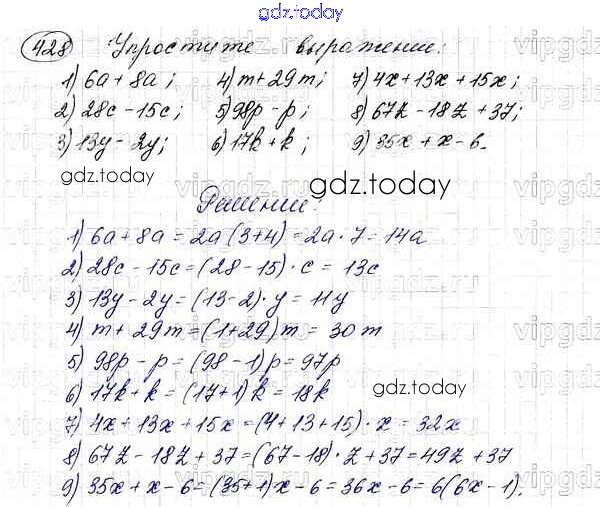 gdz.today
428 Упростите выражение:
1) 6a + 8a; 4) m + 29m; 7) 4x + 13x + 15x;
2) 28c - 15c; 5) 98p - p; 8) 67z - 18z + 37;
3) 13y - 2y; 6) 17k + k; 9) 35x + x - 6.
gdz.today gdz.today
Решение:
1) 6a + 8a = 2a(3+4) = 2a · 7 = 14a
2) 28c - 15c = (28 - 15) · c = 13c
3) 13y - 2y = (13-2) · y = 11y
4) m + 29m = (1+29)m = 30m
5) 98p - p = (98 - 1)p = 97p
gdz.today
6) 17k + k = (17+1)k = 18k
7) 4x + 13x + 15x = (4+13+15) · x = 32x
8) 67z - 18z + 37 = (67-18) · z + 37 = 49z + 37
9) 35x + x - 6 = (35+1)x - 6 = 36x - 6 = 6(6x - 1).